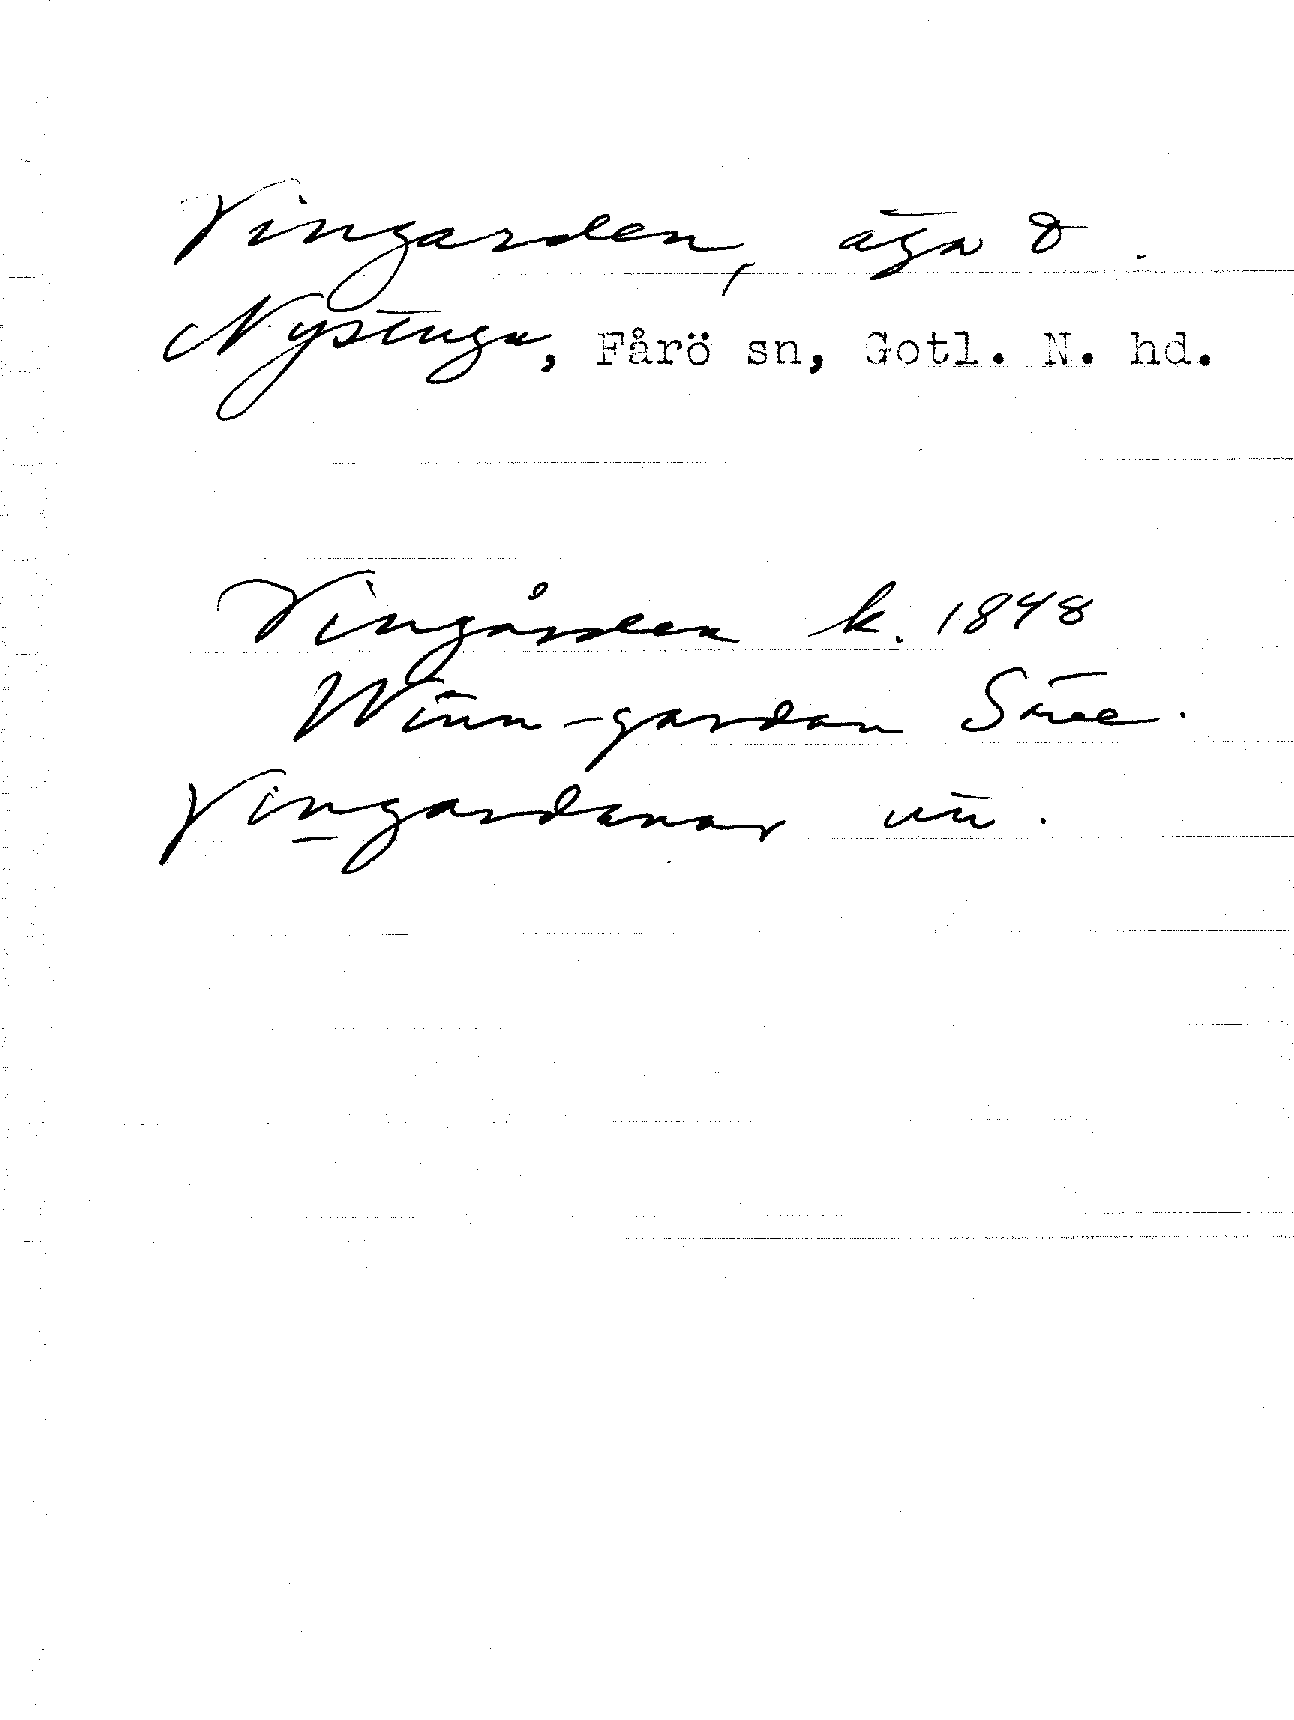 Vingarden, äga &
Nystuga, Fårö sn, Gotl. N. hd.
Vingården k. 1848
Winn-gardan Säve.
Vingardanar